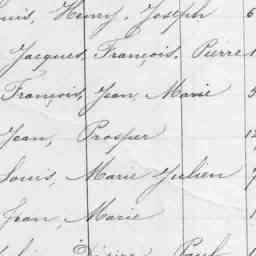 Henry, Joseph 6
Jacques, François, Pierre 1
François, Jean, Marie
Jean, Prosper 12
Louis, Marie Julien 7
Jean, Marie 1
Désiré, Paul 1